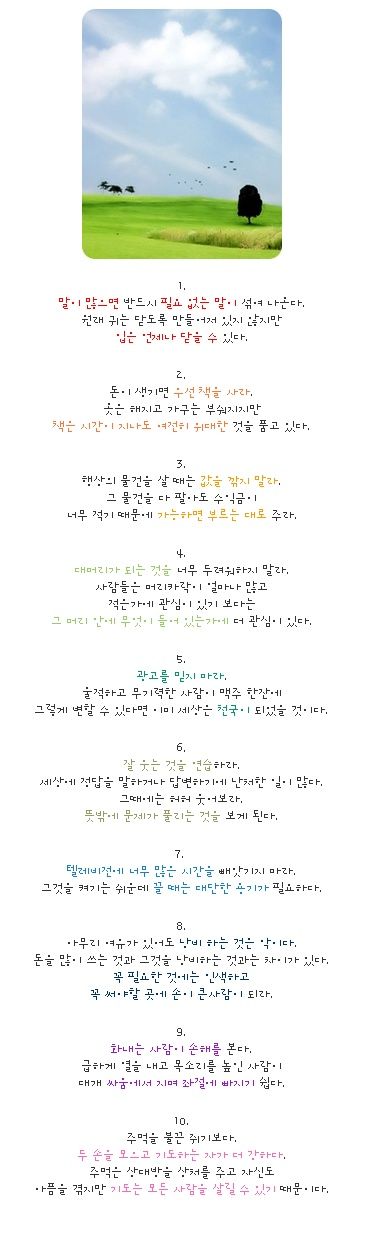 1.
말이 많으면 반드시 필요 없는 말이 섞여 나온다.
원래 귀는 닫도록 만들어져 있지 않지만
입은 언제나 닫을 수 있다.
2.
돈이 생기면 우선 책을 사라.
옷은 해지고 가구는 부숴지지만
책은 시간이 지나도 여전히 위대한 것을 품고 있다.
3.
행상의 물건을 살 때는 값을 깎지 말라.
그 물건을 다 팔아도 수익금이
너무 적기 때문에 가능하면 부르는 대로 주라.
4.
대머리가 되는 것을 너무 두려워하지 말라.
사람들은 머리카락이 얼마나 많고
적은가에 관심이 있기 보다는
그 머리 안에 무엇이 들어 있는가에 더 관심이 있다.
5.
광고를 믿지 마라.
울적하고 무기력한 사람이 맥주 한잔에
그렇게 변할 수 있다면 이미 세상은 천국이 되었을 것이다.
6.
잘 웃는 것을 연습하라.
세상에 정답을 말하거나 답변하기에 난처한 일이 많다.
그때에는 허허 웃어보라.
뜻밖에 문제가 풀리는 것을 보게 된다.
7.
텔레비전에 너무 많은 시간을 빼앗기지 마라.
그것을 켜기는 쉬운데 끌 때는 대단한 용기가 필요하다.
8.
아무리 여유가 있어도 낭비 하는 것은 악이다.
돈을 많이 쓰는 것과 그것을 낭비하는 것과는 차이가 있다.
꼭 필요한 것에는 인색하고
꼭 써야할 곳에 손이 큰사람이 되라.
9.
화내는 사람이 손해를 본다.
급하게 열을 내고 목소리를 높인 사람이
대개 싸움에서 지며 좌절에 빠지기 쉽다.
10.
주먹을 불끈 쥐기보다.
두 손을 모으고 기도하는 자가 더 강하다.
주먹은 상대방을 상처를 주고 자신도
아픔을 겪지만 기도는 모든 사람을 살릴 수 있기 때문이다.